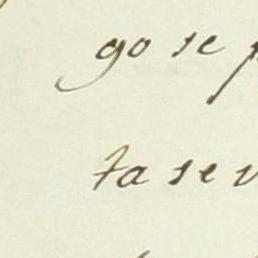 go se
ta se